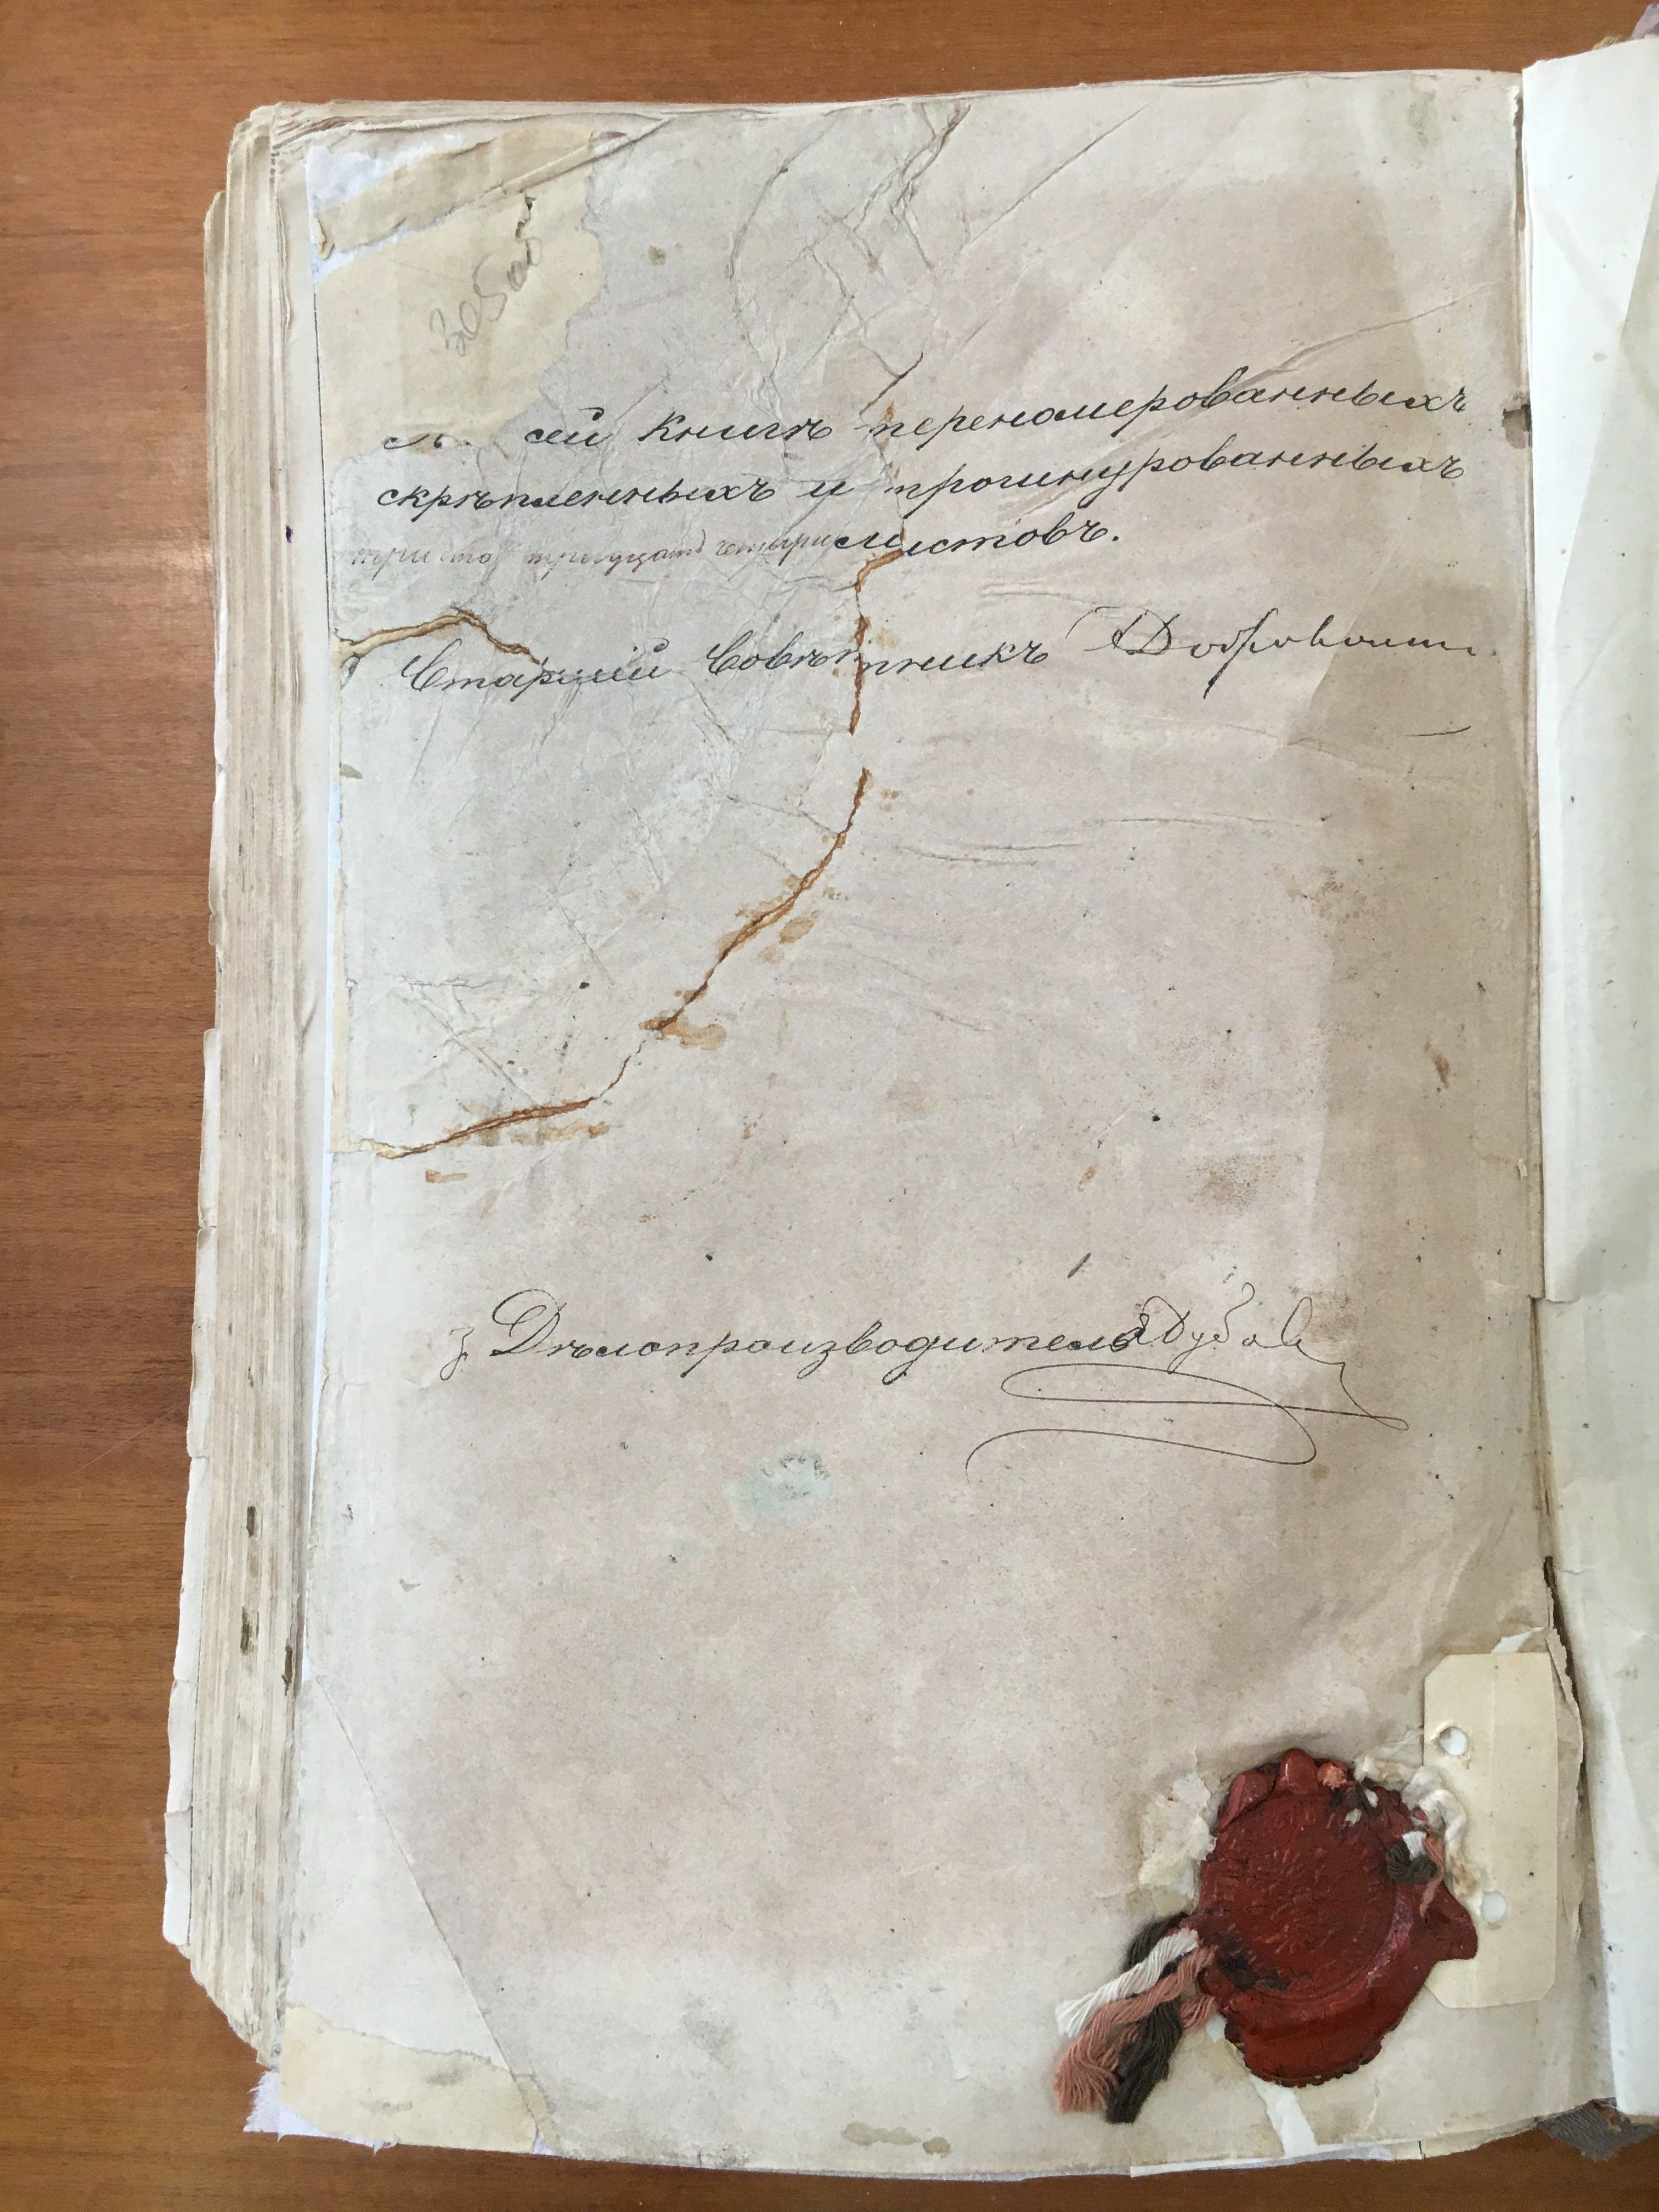 305
сей книгѣ перенумерованныхъ
скрѣпленныхъ и прошнурованныхъ
триста тридцать четыре листовъ.
Старшій Совѣтникъ
Дѣлопроизводитель